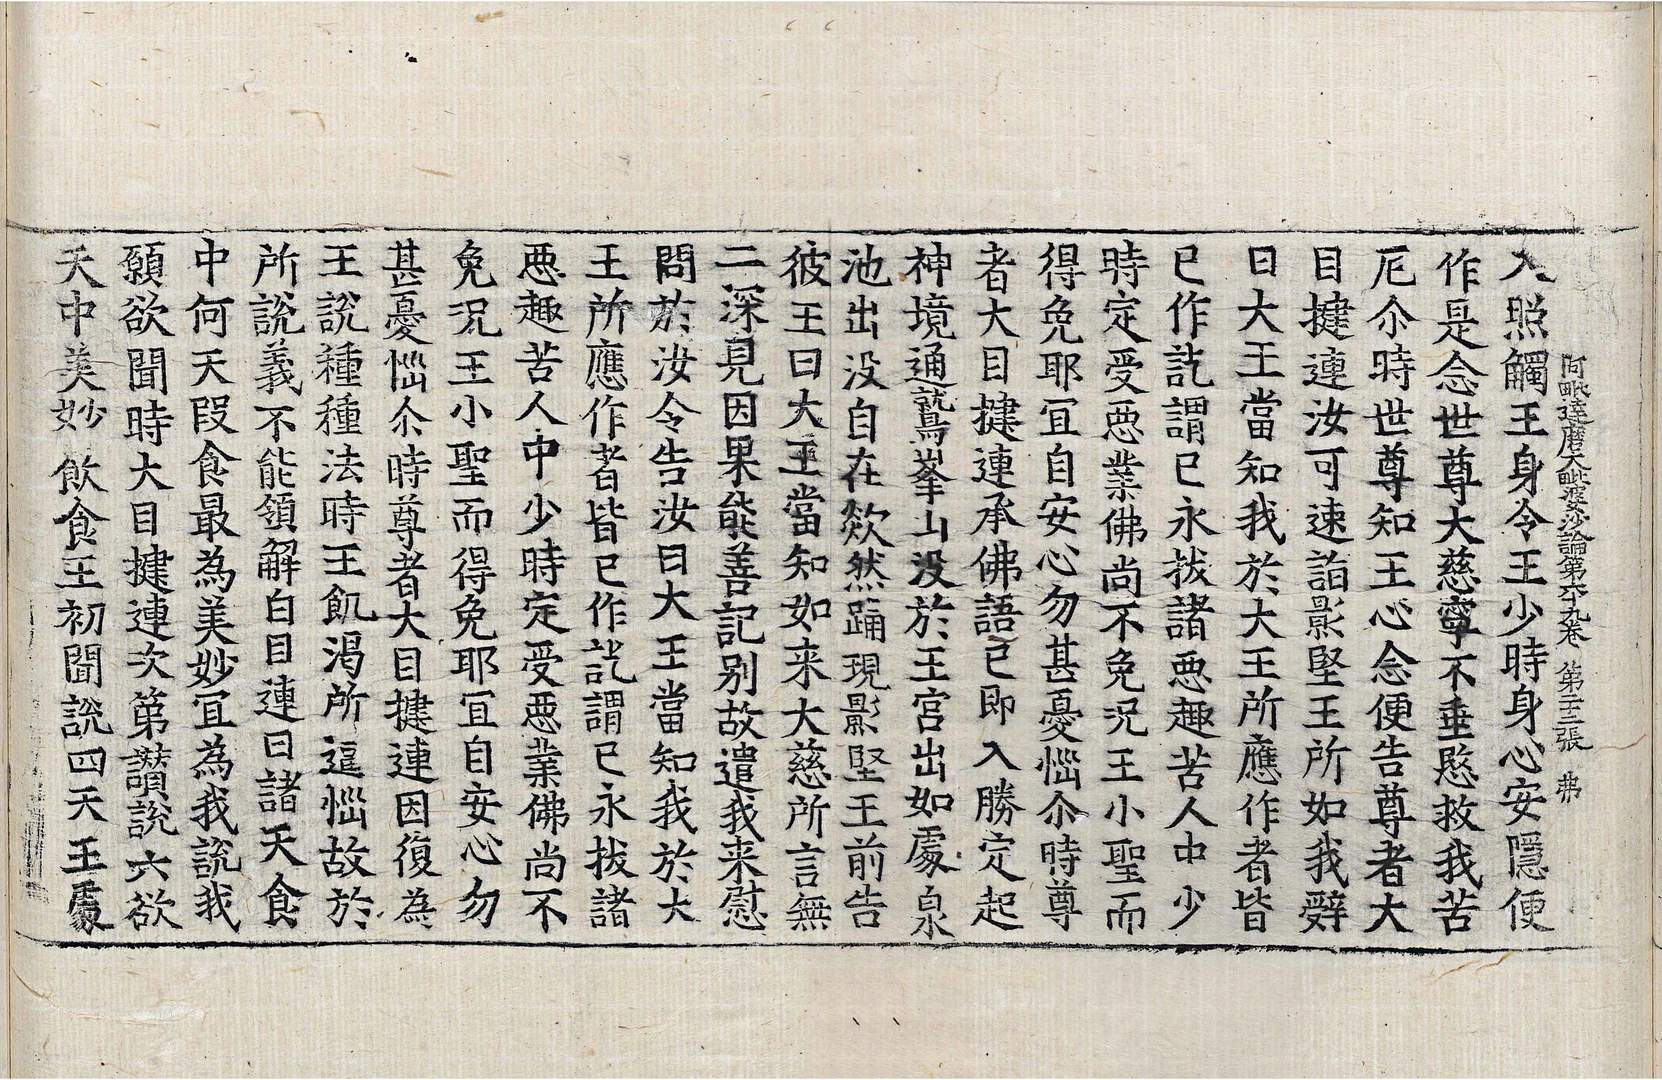 阿毗達磨大毗婆沙論第六十九卷 第十三張 弗
入照觸王身令王少時身心安隱便
作是念世尊大慈寧不垂愍救我苦
厄尒時世尊知王心念便告尊者大
目揵連汝可速詣影堅王所如我辝
曰大王當知我於大王所應作者皆
已作訖謂已永拔諸惡趣苦人中少
時定受惡業佛尚不免況王小聖而
得免耶冝自安心勿甚憂惱尒時尊
者大目揵連承佛語已即入勝定起
神境通鷲峯山沒於王宮出如處泉
池出沒自在欻然踊現影堅王前告
彼王曰大王當知如来大慈所言無
二深見因果能善記别故遣我来慰
問於汝令告汝曰大王當知我於大
王所應作者皆已作訖謂已永拔諸
惡趣苦人中少時定受惡業佛尚不
免況王小聖而得免耶冝自安心勿
甚憂惱尒時尊者大目揵連因復為
王說種種法時王飢渴所逼惱故於
所說義不能領解白目連曰諸天食
中何天段食最為美妙冝為我說我
願欲聞時大目揵連次第讚說六欲
天中美妙飲食王初聞說四天王處